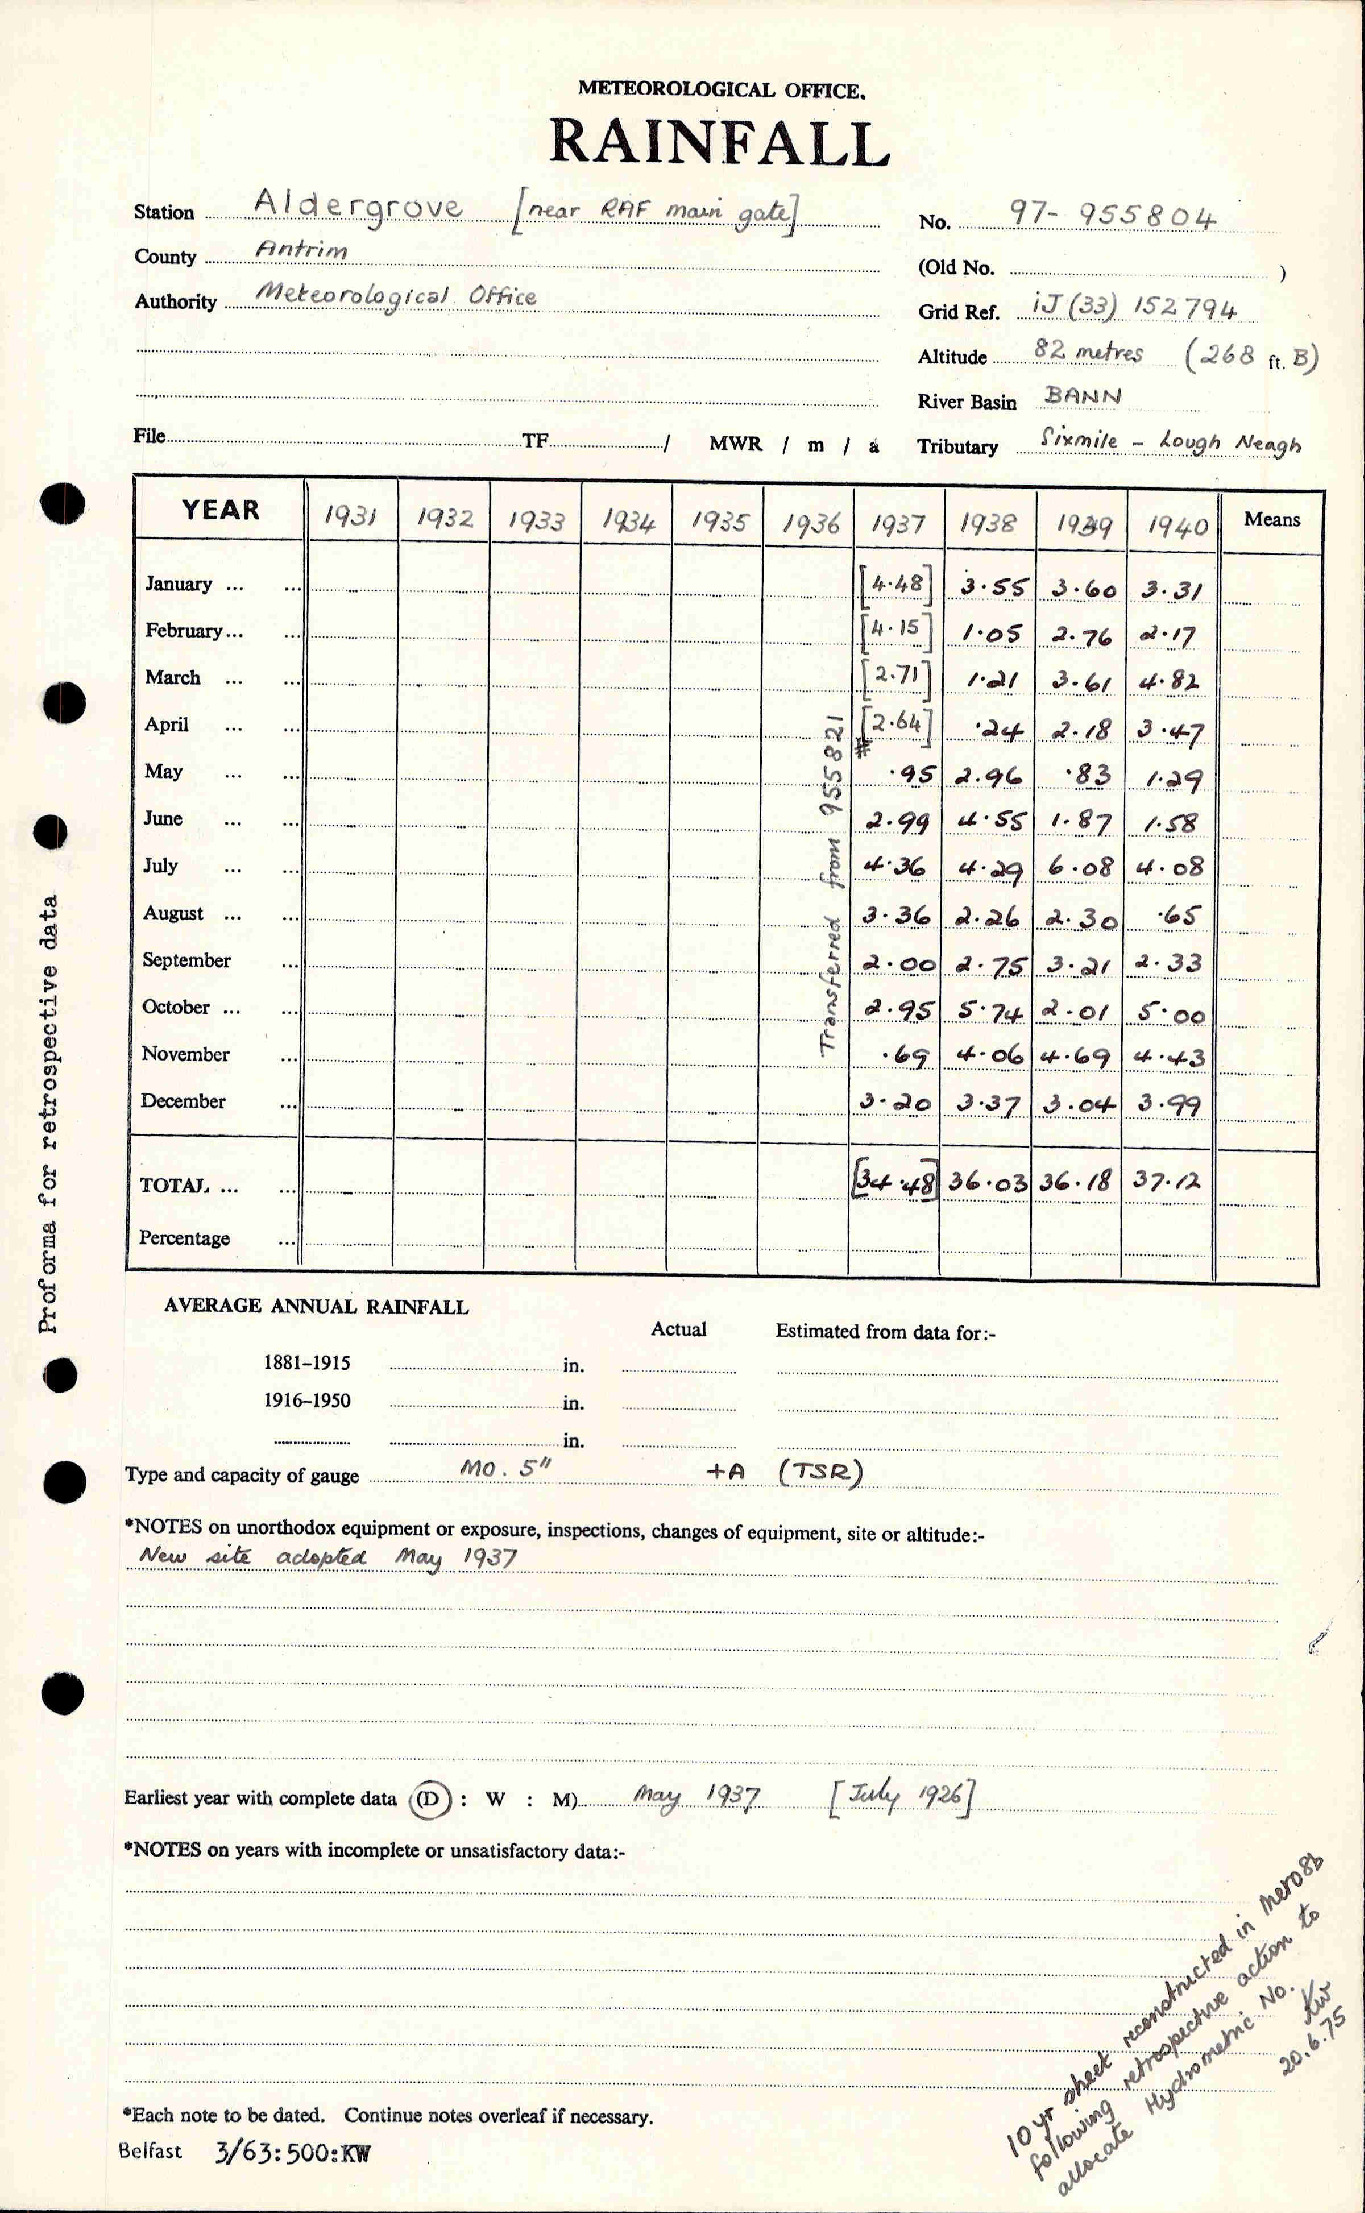 METEOROLOGICAL OFFICE.
RAINFALL
Station Aldergrove [near RAF main gate]
No. 97- 955804
County Antrim
(Old No. )
Authority Meteorological Office
Grid Ref. iJ (33) 152794
Altitude 82 metres (268 ft. B)
River Basin BANN
File TF / MWR / m / a
Tributary Sixmile - Lough Neagh
YEAR 1931 1932 1933 1934 1935 1936 1937 1938 1939 1940 Means
January ... ... [4.48] 3.55 3.60 3.31
February... ... [4.15] 1.05 2.76 2.17
March ... ... [2.71] 1.21 3.61 4.82
April ... ... [2.64] .24 2.18 3.47
May ... ... # .95 2.96 .83 1.29
June ... ... 2.99 4.55 1.87 1.58
July ... ... 4.36 4.29 6.08 4.08
August ... ... 3.36 2.26 2.30 .65
September ... 2.00 2.75 3.21 2.33
October ... ... 2.95 5.74 2.01 5.00
November ... .69 4.06 4.69 4.43
December ... 3.20 3.37 3.04 3.99
Transferred from 955821
TOTAL ... ... [34.48] 36.03 36.18 37.12
Percentage ...
Proforma for retrospective data
AVERAGE ANNUAL RAINFALL
Actual Estimated from data for:-
1881-1915 in.
1916-1950 in.
in.
Type and capacity of gauge MO. 5" +A (TSR)
*NOTES on unorthodox equipment or exposure, inspections, changes of equipment, site or altitude:-
New site adopted May 1937
Earliest year with complete data (D : W : M) May 1937 [July 1926]
*NOTES on years with incomplete or unsatisfactory data:-
10 yr sheet reconstructed in Met O 8b
following retrospective action to
allocate Hydrometric No. KW
20.6.75
*Each note to be dated. Continue notes overleaf if necessary.
Belfast 3/63:500:KW